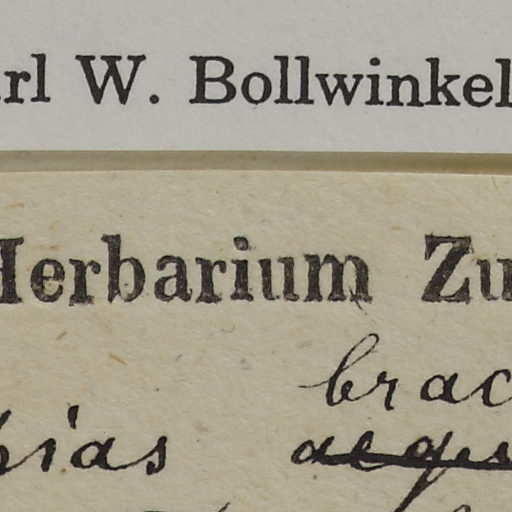 rl W. Bollwinkel
Herbarium Zu
brac
hias aegi